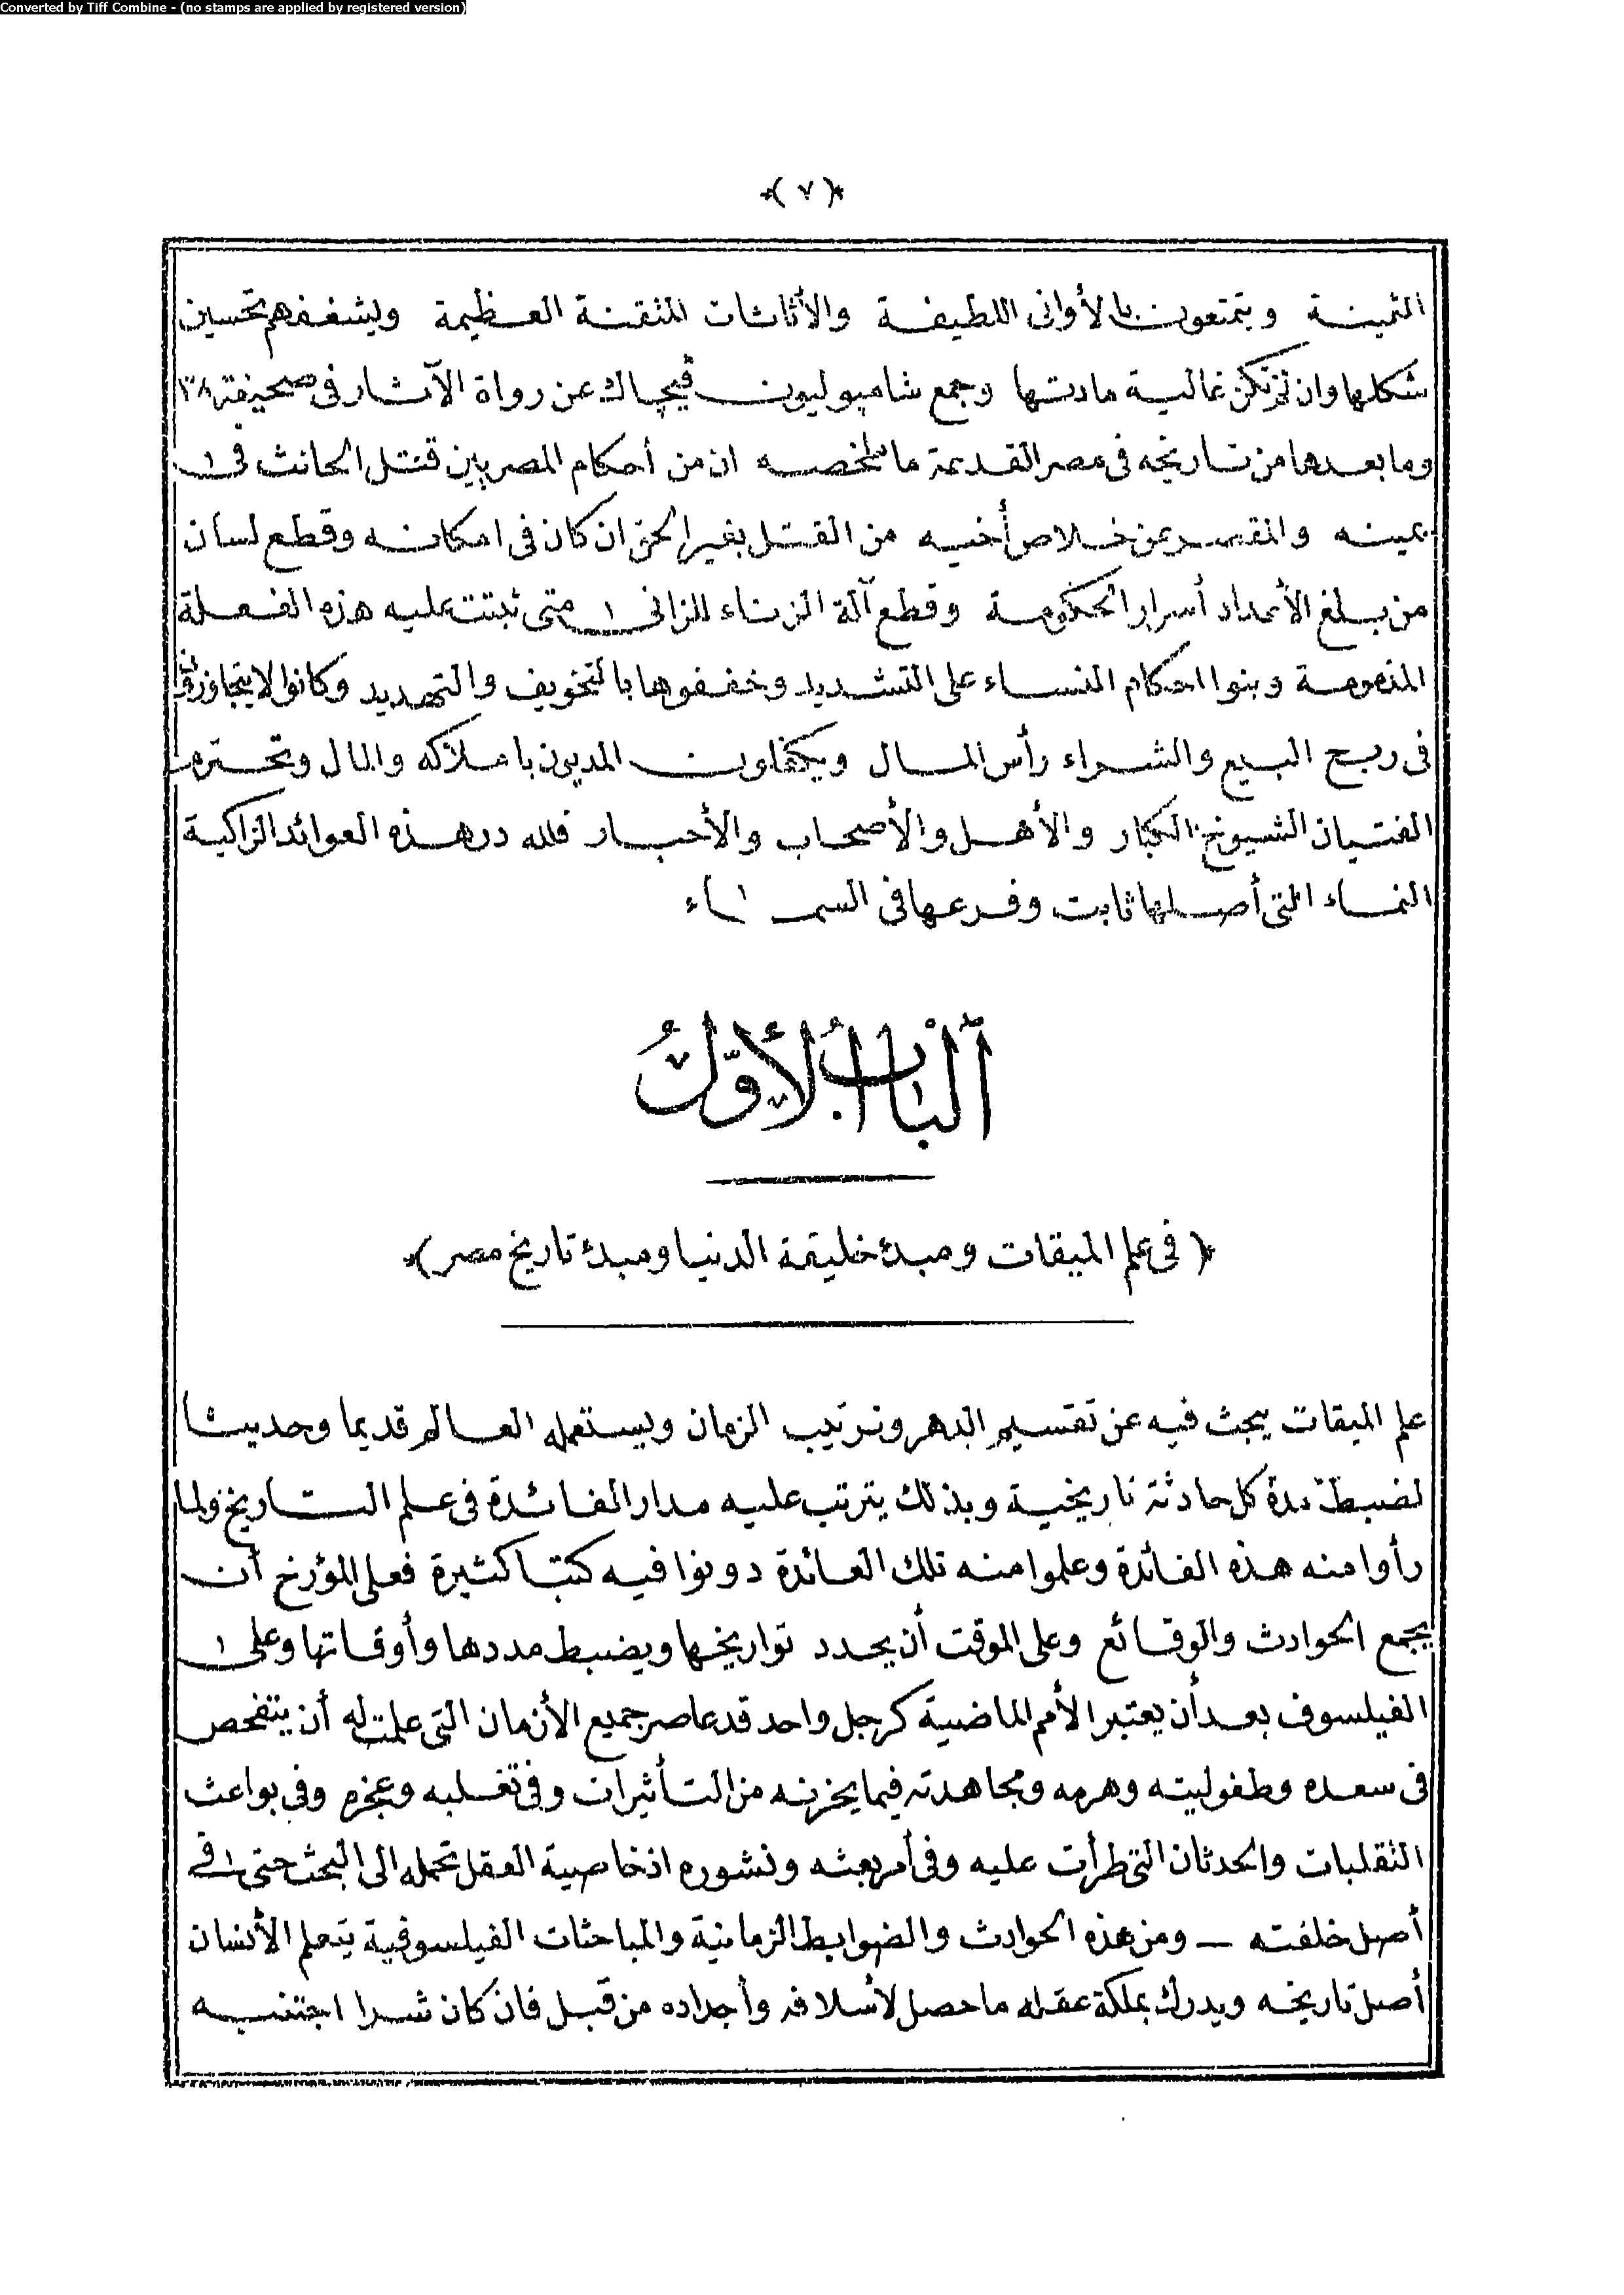 Converted by Tiff Combine - (no stamps are applied by registered version)
﴿ ٧ ﴾
الثمينة ويتمتعون بالأوانى اللطيفة والأثاثات المتقنة العظيمة ويشغفهم تحسين
شكلها وان لم تكن غالية مادتها وجمع شامبوليون فيجاك عن رواة الآثار فى صحيفة ٣٨
وما بعدها من تاريخه فى مصر القديمة ما ملخصه ان من أحكام المصريين قتل الحانث فى
يمينه والمقصر عن خلاص أخيه من القتل بغير الحق ان كان فى امكانه وقطع لسان
من يبلغ الأعداد أسرار الحكومة وقطع آلة الزناء للزانى متى ثبتت عليه هذه الفعلة
المذمومة وبنوا احكام النساء على التشديد وخففوها بالتخويف والتهديد وكانوا لا يتجاوزون
فى ربح البيع والشراء رأس المال ويكفلون المديون باملاكه والمال وتحترم
الفتيان الشيوخ الكبار والأهل والأصحاب والأحبار فلله در هذه العوائد الزاكية
النماء التى أصلها ثابت وفرعها فى السماء
اَلْبَابُ الأَوَّلُ
﴿ فى علم الميقات ومبدء خليقة الدنيا ومبدء تاريخ مصر ﴾
علم الميقات يبحث فيه عن تقسيم الدهر وترتيب الزمان ويستعمله العالم قديما وحديثا
لضبط مدة كل حادثة تاريخية وبذلك يترتب عليه مدار الفائدة فى علم التاريخ ولما
رأوا منه هذه الفائدة وعلموا منه تلك العائدة دونوا فيه كتبا كثيرة فعلى المؤرخ أن
يجمع الحوادث والوقائع وعلى الموقت أن يحدد تواريخها ويضبط مددها وأوقاتها وعلى
الفيلسوف بعد أن يعتبر الأمم الماضية كرجل واحد قد عاصر جميع الأزمان التى علمت له أن يتفحص
فى سعده وطفوليته وهرمه ومجاهدته فيما يحزنه من التأثيرات وفى تغلبه وعجزه وفى بواعث
التقلبات والحدثان التى طرأت عليه وفى أمر بعثه ونشوره اذ خاصية العقل تحمله الى البحث حتى فى
أصل خلقته — ومن هذه الحوادث والضوابط الزمانية والمباحثات الفيلسوفية يتعلم الأنسان
أصل تاريخه ويدرك بملكة عقله ما حصل لأسلافه وأجداده من قبل فان كان شرا اجتنبه